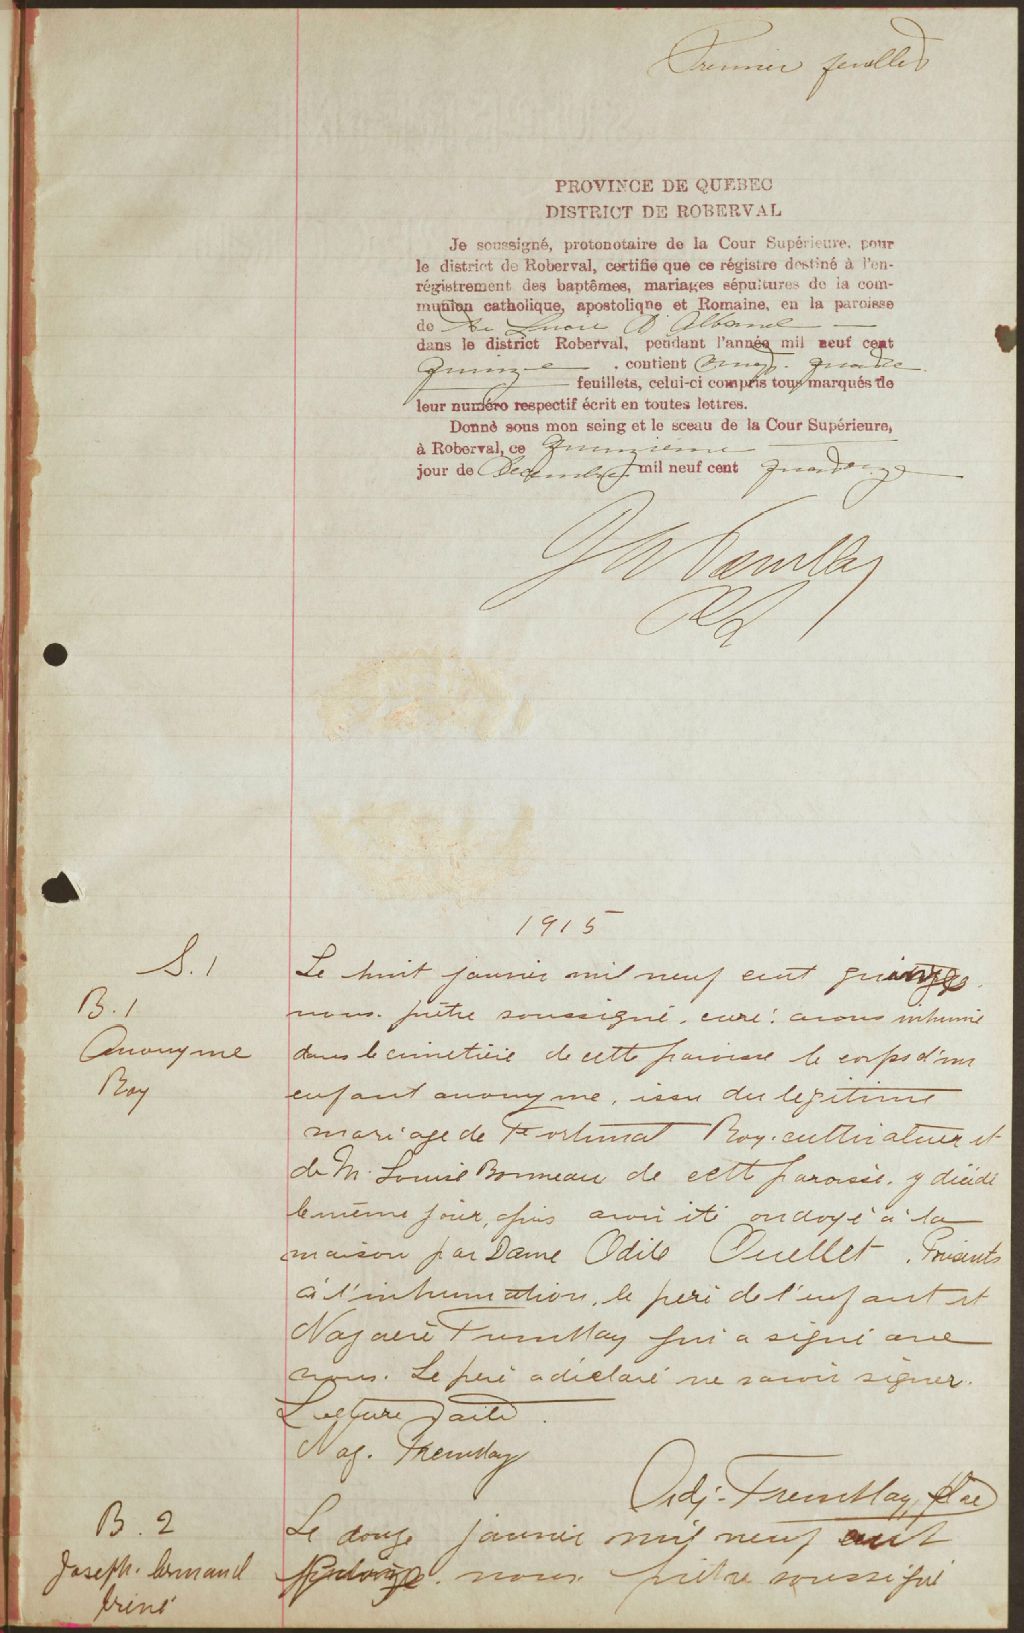 Premier feuillet
PROVINCE DE QUEBEC
DISTRICT DE ROBERVAL
Je soussigné, protonotaire de la Cour Supérieure, pour
le district de Roberval, certifie que ce régistre destiné à l'en-
régistrement des baptêmes, mariages sépultures de la com-
munion catholique, apostolique et Romaine, en la paroisse
de St Lucie d'Albanel
dans le district Roberval, pendant l'année mil neuf cent
quinze . contient vingt-quatre
feuillets, celui-ci compris tous marqués de
leur numéro respectif écrit en toutes lettres.
Donné sous mon seing et le sceau de la Cour Supérieure,
à Roberval, ce quinzième
jour de Decembre mil neuf cent quatorze
Tremblay
1915
S. 1
B. 1
Anonyme
Roy
Le huit janvier mil neuf cent quinze
nous prêtre soussigné, curé, avons inhumé
dans le cimetière de cette paroisse le corps d'un
enfant anonyme, issu du légitime
mariage de Fortunat Roy, cultivateur et
de M. Louise Bonneau de cette paroisse, y décédé
le même jour, après avoir été ondoyé à la
maison par Dame Odile Ouellet. Présents
à l'inhumation, le père de l'enfant et
Nazaire Tremblay qui a signé avec
nous. Le père a déclaré ne savoir signer.
Lecture faite.
Naz. Tremblay
Adj. Tremblay, Ptre
B. 2
Joseph Armand
Le douze janvier mil neuf cent
quinze nous prêtre soussigné